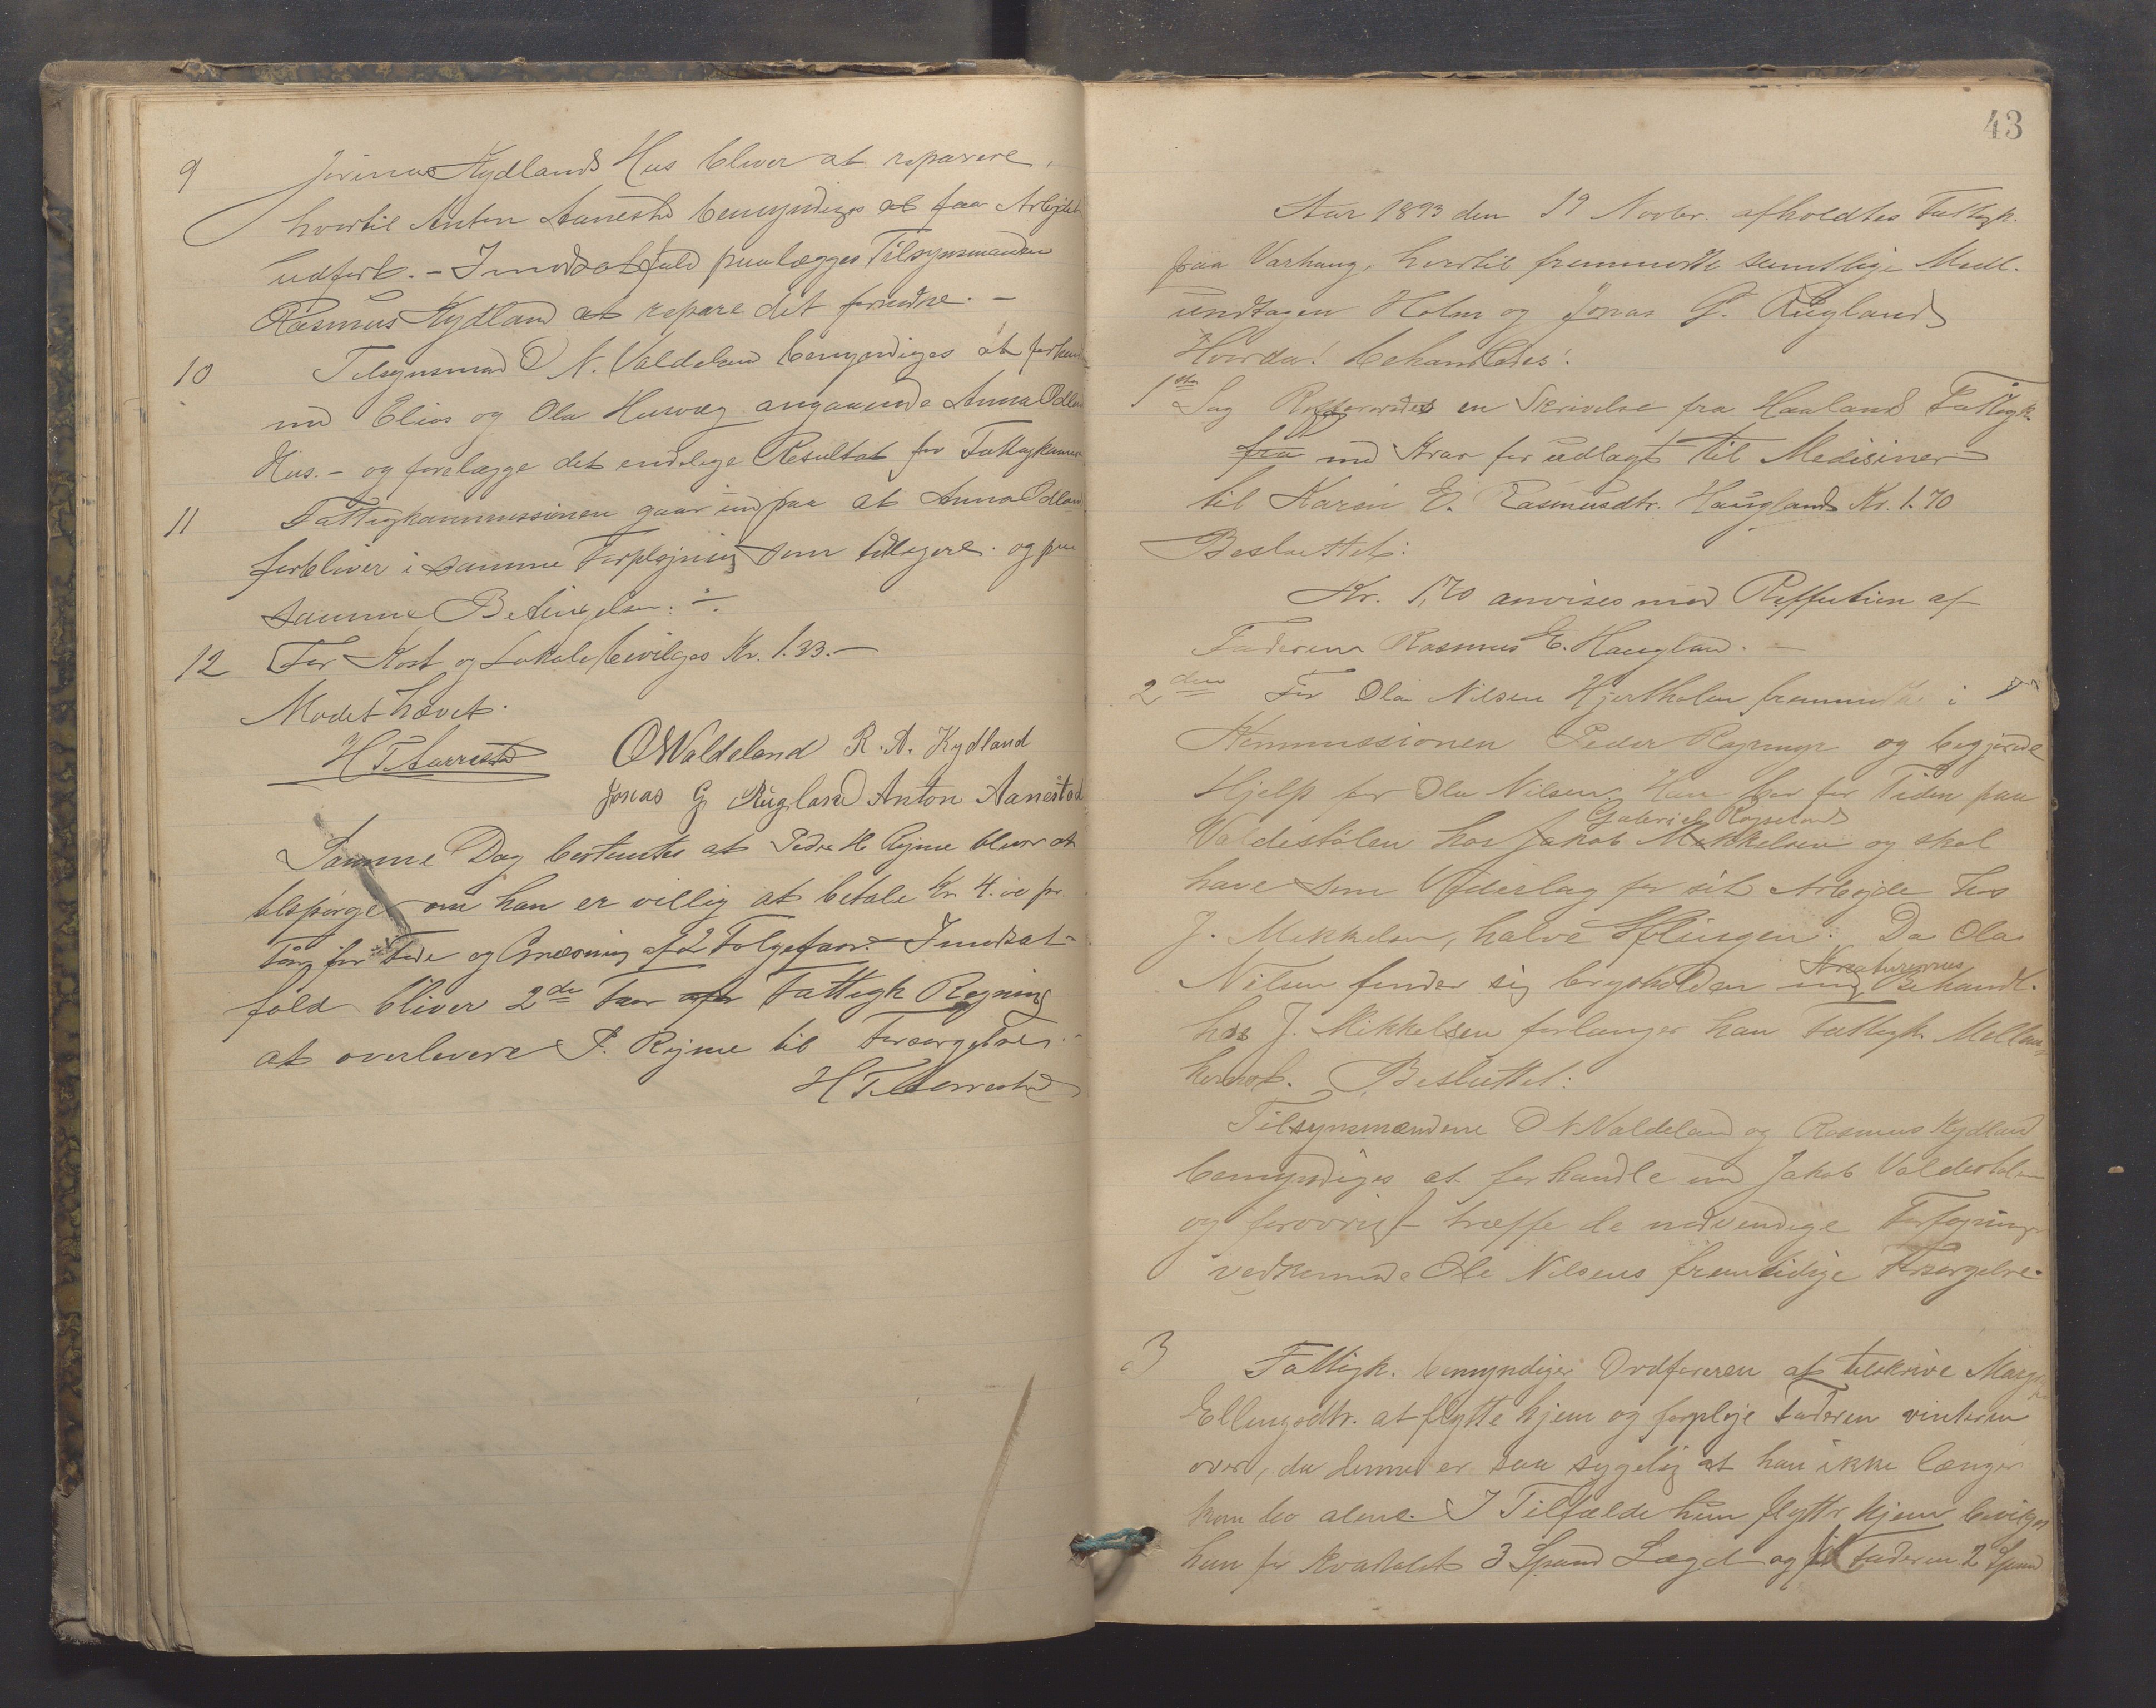 9 Jorinas Kydlands Hus bliver at reparere,
hvortil Anton Aanestad bemyndiges at faa Arbejdet
udført. – I modsat fald paalægges Tilsynsmanden
Rasmus Kydland at repare det fornødne. –
10 Tilsynsmand O N. Valdeland bemyndiges at forhand
med Elias og Ola Husvæg angaaende Anna Ødlan
Hus. – og forelægge det endelige Resultat for Fattigkommis
11 Fattigkommissionen gaar ind paa at Anna Ødland
forbliver i samme Forplejning som tidligere. og paa
samme Betingelser. ÷
12 For Kost og Lokale bevilges Kr. 1.33. –
Mødet hævet.
H T. Aarrestad O N Valdeland R. A. Kydland
Jonas G Rugland Anton Aanestad
Samme Dag bestemtes at Peder H Rejme bliver at
tilspørge om han er villig at betale Kr 4.00 pr.
for Føde og Græsning af 2 Følgefaar. I modsat-
fald bliver 2de Faar Fattigk Regning
at overlevere P. Rejme til Forsørgelse.
H T. Aarrestad
43
Aar 1893 den 19 Novbr. afholdtes Fattigk.
paa Varhaug, hvortil fremmødte samtlige Medl.
undtagen Holm og Jonas G. Rugland
Hvorda! behandledes:
1ste Sag Refereredes en Skrivelse fra Haaland Fattigk.
fra med Krav for udlagt til Medisiner
til Karen E. Rasmusdtr. Haugland Kr. 1.70
Besluttet:
Kr. 1,70 anvises mod Reffution af
Faderen Rasmus E. Haugland. –
2den For Ola Nilsen Hjertholen fremmødte i
Kommissionen Peder og begjærede
Hjelp for Ola Nilsen. Han har for Tiden paa
Gabriel
Valdestølen hos Jakob Mikkelsen og skal
have som Vederlag for sit Arbejde hos
J. Mikkelsen, halve Avlingen. Da Ola
Kreaturernes
Nilsen finder sig brysholden med Behandl.
hos J. Mikkelsen forlanger han Fattigk. Mellem=
komst. Besluttet:
Tilsynsmændene O N Valdeland og Rasmus Kydland
bemyndiges at forhandle med Jakob Valdestølen
og forøvrigt træffe de nødvendige Forføjninger
vedkommende Ole Nilsens fremtidige Forsørgelse.
3 Fattigk. bemyndiger Ordføreren at tilskrive
Ellingsdtr. at flytte hjem og forpleje Faderen vinteren
over, da denne er saa sygelig at han ikke længer
kan bo alene. I Tilfælde hun flytter hjem bevilges
hun for Kvartalet 3 Spand Lægd og til Faderen 2 Spand